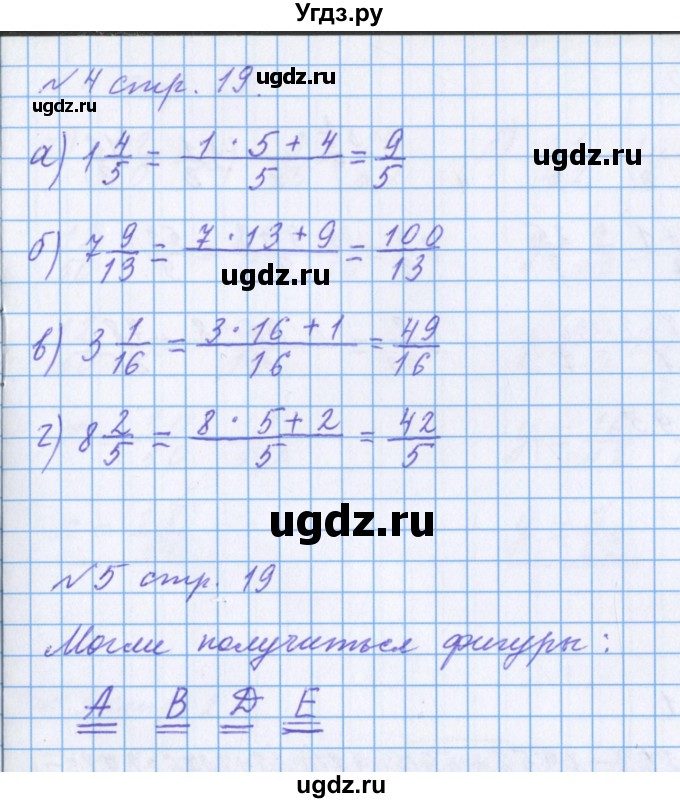 Угдз.ру
№4 стр. 19.
ugdz.ru
ugdz.ru
а) 1 4/5 = (1 · 5 + 4)/5 = 9/5
ugdz.ru
б) 7 9/13 = (7 · 13 + 9)/13 = 100/13
ugdz.ru
в) 3 1/16 = (3 · 16 + 1)/16 = 49/16
г) 8 2/5 = (8 · 5 + 2)/5 = 42/5
ugdz.ru
№5 стр. 19
Могли получиться фигуры:
А В D Е
ugdz.ru